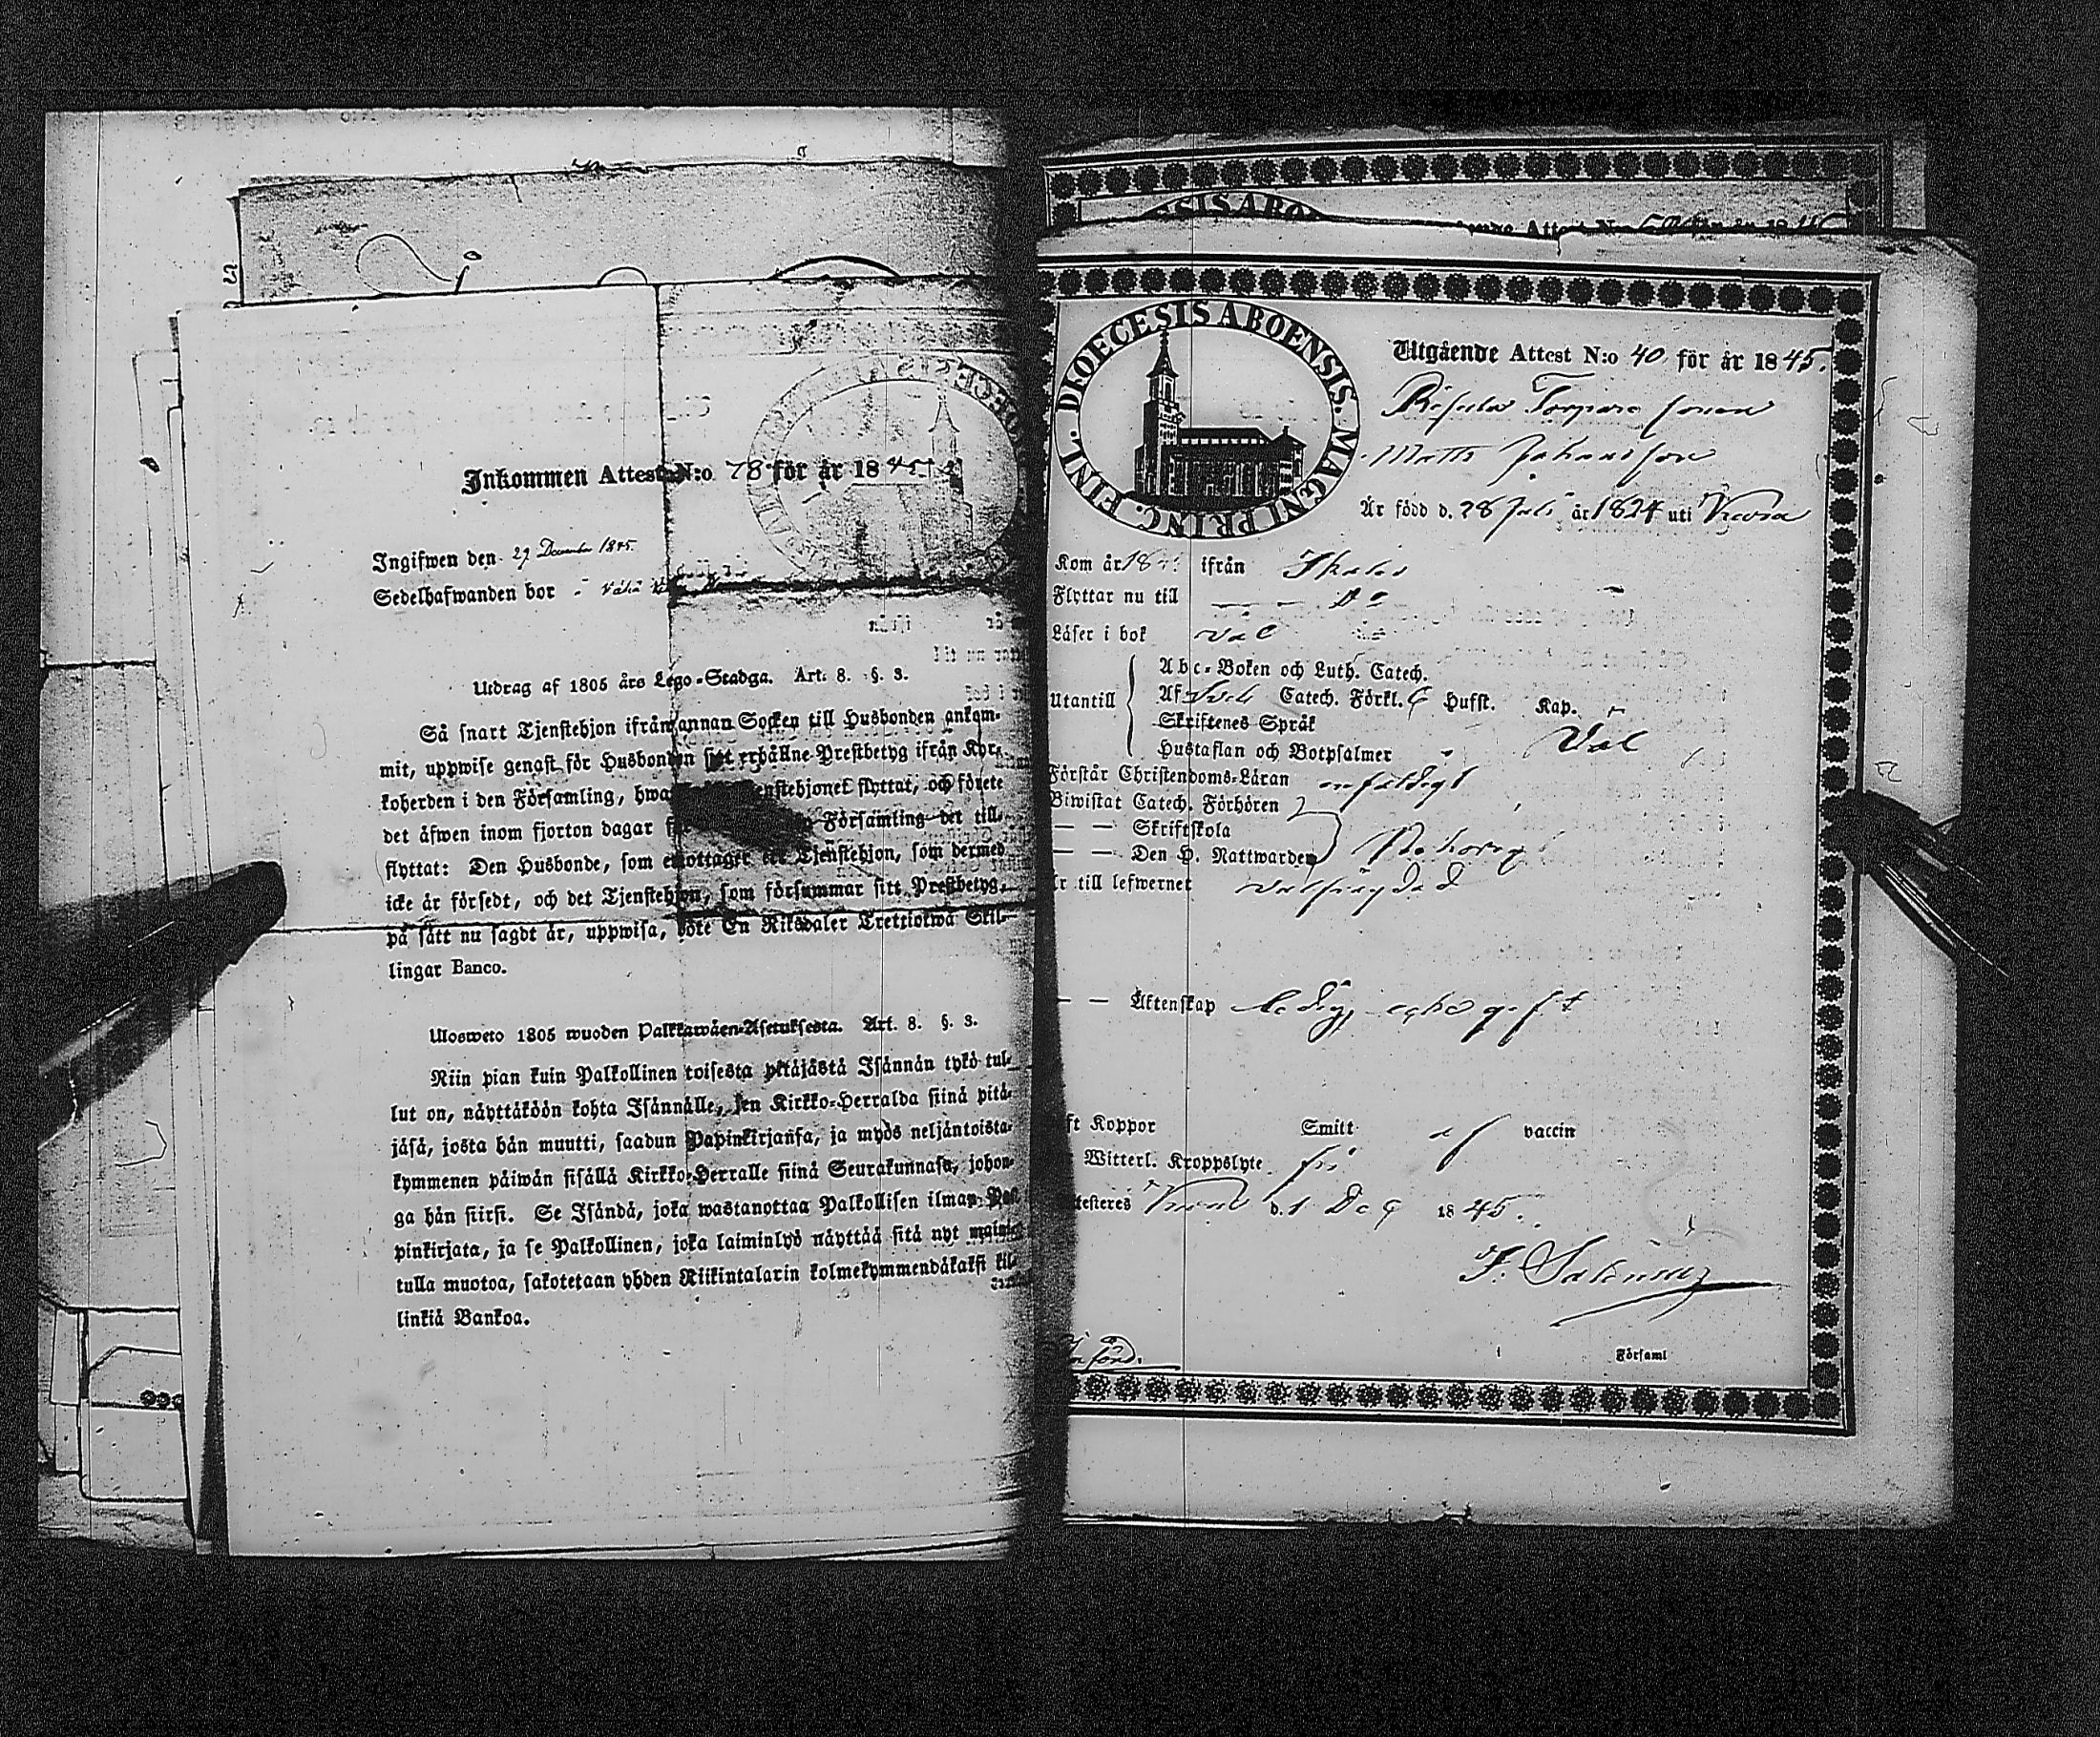 Inkommen Attest N:o 78 för år 1845
Ingifwen den 29 December 1845.
Sedelhafwanden bor i
Utdrag af 1805 års Lego-Stadga. Art. 8. §. 3.
Så snart Tjenstehjon ifrån annan Socken till Husbonden ankom-
mit, uppwise genast för Husbonden sitt erhållne Prestbetyg ifrån Kyr-
koherden i den Församling, hwa enstehjonet flyttat, och förete
det äfwen inom fjorton dagar Församling det till-
flyttat: Den Husbonde, som emottager ett Tjenstehjon, som dermed
icke är försedt, och det Tjenstehjon, som försummar sitt Prestbetyg,
på sätt nu sagdt är, uppwisa, böte En Riksdaler Trettiotwå Skil-
lingar Banco.
Ulosweto 1805 wuoden Palkkawäen-Asetuksesta. Art. 8. §. 3.
Niin pian kuin Palkollinen toisesta pitäjästä Isännän tykö tul-
lut on, näyttäköön kohta Isännälle, sen Kirkko-Herralda siinä pitä-
jäsä, josta hän muutti, saadun Papinkirjansa, ja myös neljäntoista-
kymmenen päiwän sisällä Kirkko-Herralle siinä Seurakunnasa, johon-
ga hän siirsi. Se Isändä, joka wastanottaa Palkollisen ilman Pa-
pinkirjata, ja se Palkollinen, joka laiminlyö näyttää sitä nyt mainit-
tulla muotoa, sakotetaan yhden Riikintalarin kolmekymmendäkaksi kil-
linkiä Bankoa.
ående Attest N:o för år 18
DIOECESIS ABOENSIS. MAGNI PRINC. FINL.
Utgående Attest N:o 40 för år 1845.
Torpare sonen
Matts Johansson
Är född d. 28 Juli år 1824 uti
Kom år 18 ifrån Ikalis
Flyttar nu till — — Do
Läser i bok väl
Abc-Boken och Luth. Catech.
Utantill Af Catech. Förkl. Hufst. Kap.
Skriftenes Språk
Hustaflan och Botpsalmer Väl
Förstår Christendoms-Läran enfaldigt
Biwistat Catech. Förhören
— — Skriftskola
— — Den H. Nattwarden Behörigt
Är till lefwernet välfrägdad
— — Äktenskap ledig, echo gift
ft Koppor Smitt af vaccin
Witterl. Kroppslyte fri
testeres d. 1 Dec 1845.
Församl